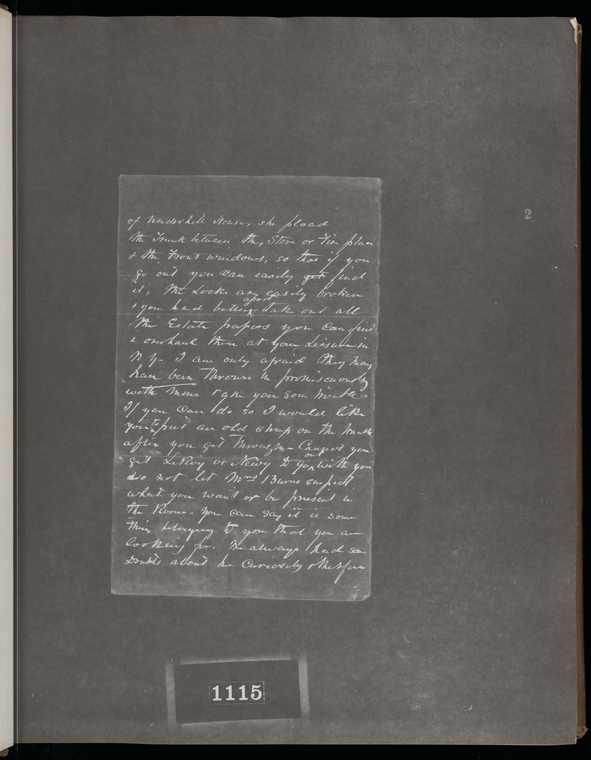 2
of Underhill House, she placed
the Trunk between the Stove or Fire place
& the Front windows, so that if you
go out you can easily get find
it; The Locks are easily broken
& you had better take out all
the Estate papers you can find
& overhaul them at your Leisure in
N.Y. I am only afraid they may
have been Thrown in promiscuously
with mine & give you some trouble
If you can do so I would like
you to put an old strap on the trunk
after you get through - Cannot you
get LeRoy or Newy to go out with you
do not let Mrs Burns suspect
what you want or be present in
the Room. You can say it is some
thing belonging to you that you are
looking for. I always had
Doubts about her Curiosity &
1115